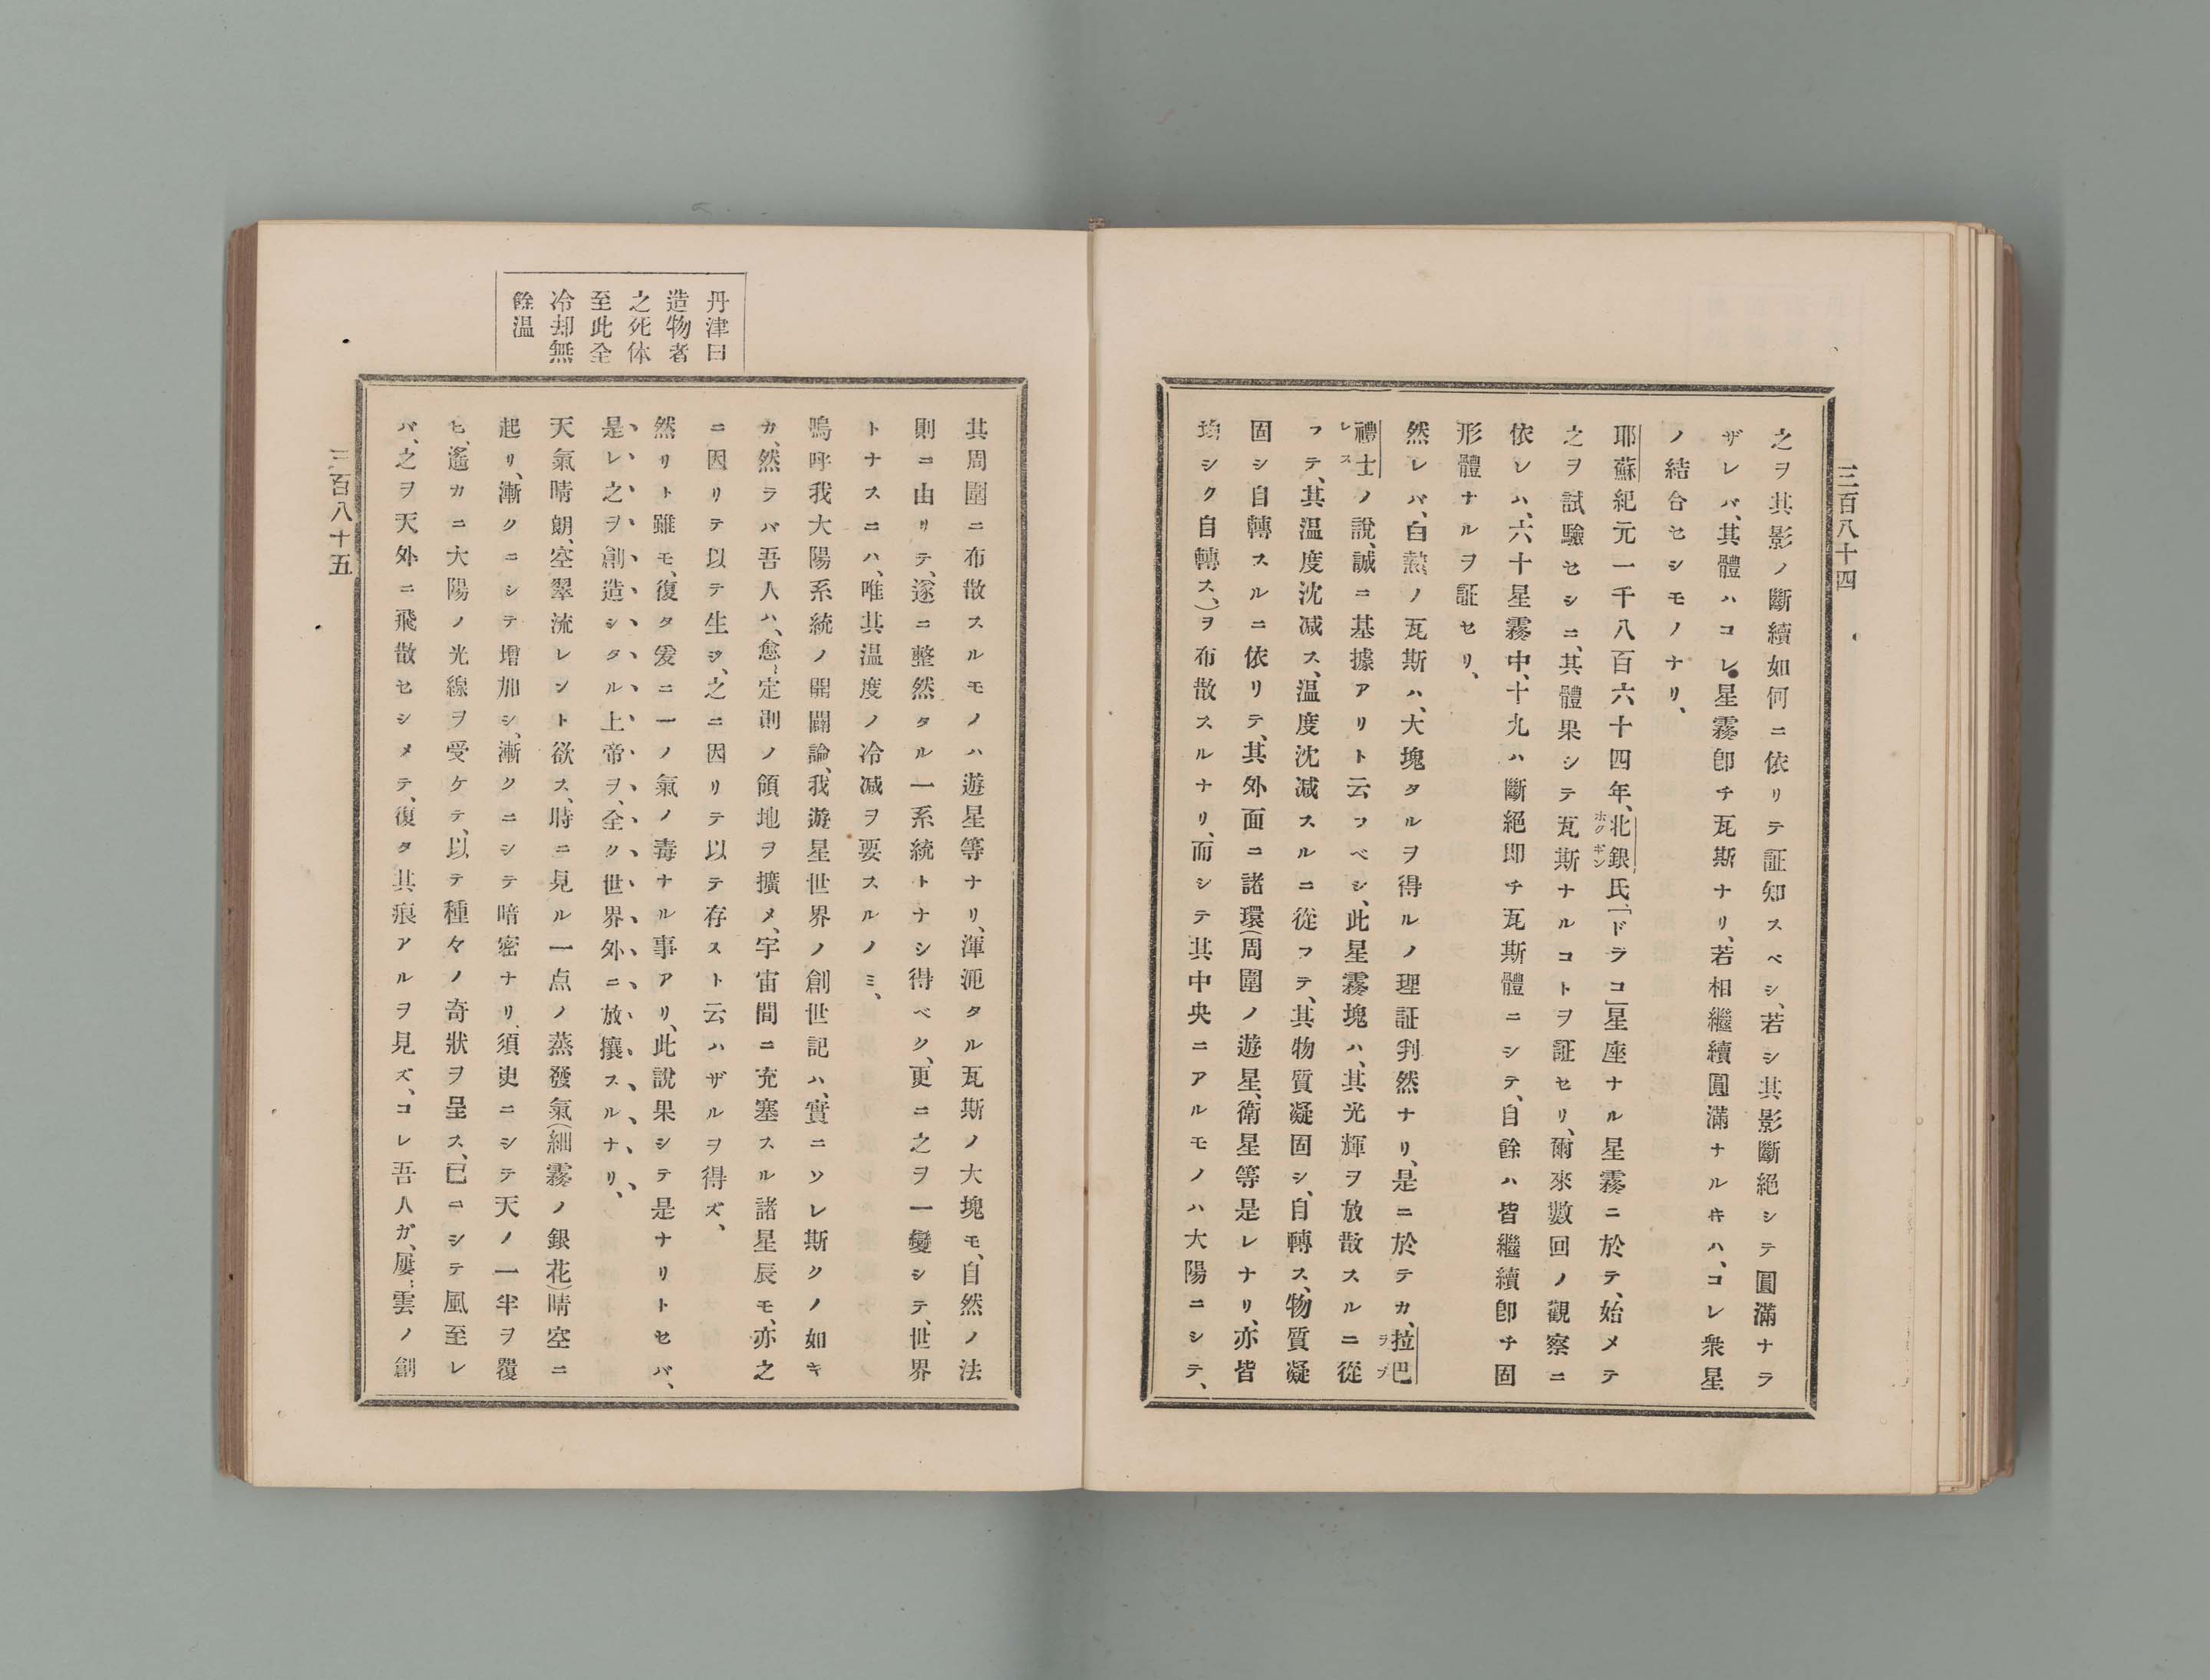 三百八十四
之ヲ其影ノ斷續如何ニ依リテ証知スベシ、若シ其影斷絕シテ圓滿ナラ
ザレバ、其體ハコレ星霧卽チ瓦斯ナリ、若相繼續圓滿ナルキハ、コレ衆星
ノ結合セシモノナリ、
耶蘇紀元一千八百六十四年、北銀氏、「ドラコ」星座ナル星霧ニ於テ、始メテ
ホクギン
之ヲ試驗セシニ、其體果シテ瓦斯ナルコトヲ証セリ、爾來數回ノ觀察ニ
依レハ、六十星霧中、十九ハ斷絕卽チ瓦斯體ニシテ、自餘ハ皆繼續卽チ固
形體ナルヲ証セリ、
然レバ、白熱ノ瓦斯ハ、大塊タルヲ得ルノ理証判然ナリ、是ニ於テカ、拉巴
ラプ
禮士ノ說、誠ニ基據アリト云フベシ、此星霧塊ハ、其光輝ヲ放散スルニ從
レス
フテ、其温度沈減ス、温度沈減スルニ從フテ、其物質凝固シ、自轉ス、物質凝
固シ自轉スルニ依リテ、其外面ニ諸環(周圍ノ遊星、衛星等是レナリ、亦皆
均シク自轉ス、)ヲ布散スルナリ、而シテ其中央ニアルモノハ大陽ニシテ、
丹津曰
造物者
之死体
至此全
冷却無
餘温
其周圍ニ布散スルモノハ遊星等ナリ、渾沌タル瓦斯ノ大塊モ、自然ノ法
則ニ由リテ、遂ニ整然タル一系統トナシ得ベク、更ニ之ヲ一變シテ、世界
トナスニハ、唯其温度ノ冷减ヲ要スルノミ、
嗚呼我大陽系統ノ開闢論、我遊星世界ノ創世記ハ、實ニソレ斯クノ如キ
カ、然ラバ吾人ハ、愈〻定則ノ領地ヲ擴メ、宇宙間ニ充塞スル諸星辰モ、亦之
ニ因リテ以テ生ジ、之ニ因リテ以テ存スト云ハザルヲ得ズ、
然リト雖モ、復タ爰ニ一ノ氣ノ毒ナル事アリ、此說果シテ是ナリトセバ、
是レ之ヲ創造シタル上帝ヲ、全ク世界外ニ放攘スルナリ、
天氣晴朗、空翠流レント欲ス、時ニ見ル一点ノ蒸發氣(細霧ノ銀花)晴空ニ
起リ、漸クニシテ增加シ、漸クニシテ暗密ナリ、須臾ニシテ天ノ一半ヲ覆
ヒ、遙カニ大陽ノ光線ヲ受ケテ、以テ種々ノ奇狀ヲ呈ス、已ニシテ風至レ
バ、之ヲ天外ニ飛散セシメテ、復タ其痕アルヲ見ズ、コレ吾人ガ、屢〻雲ノ創
三百八十五